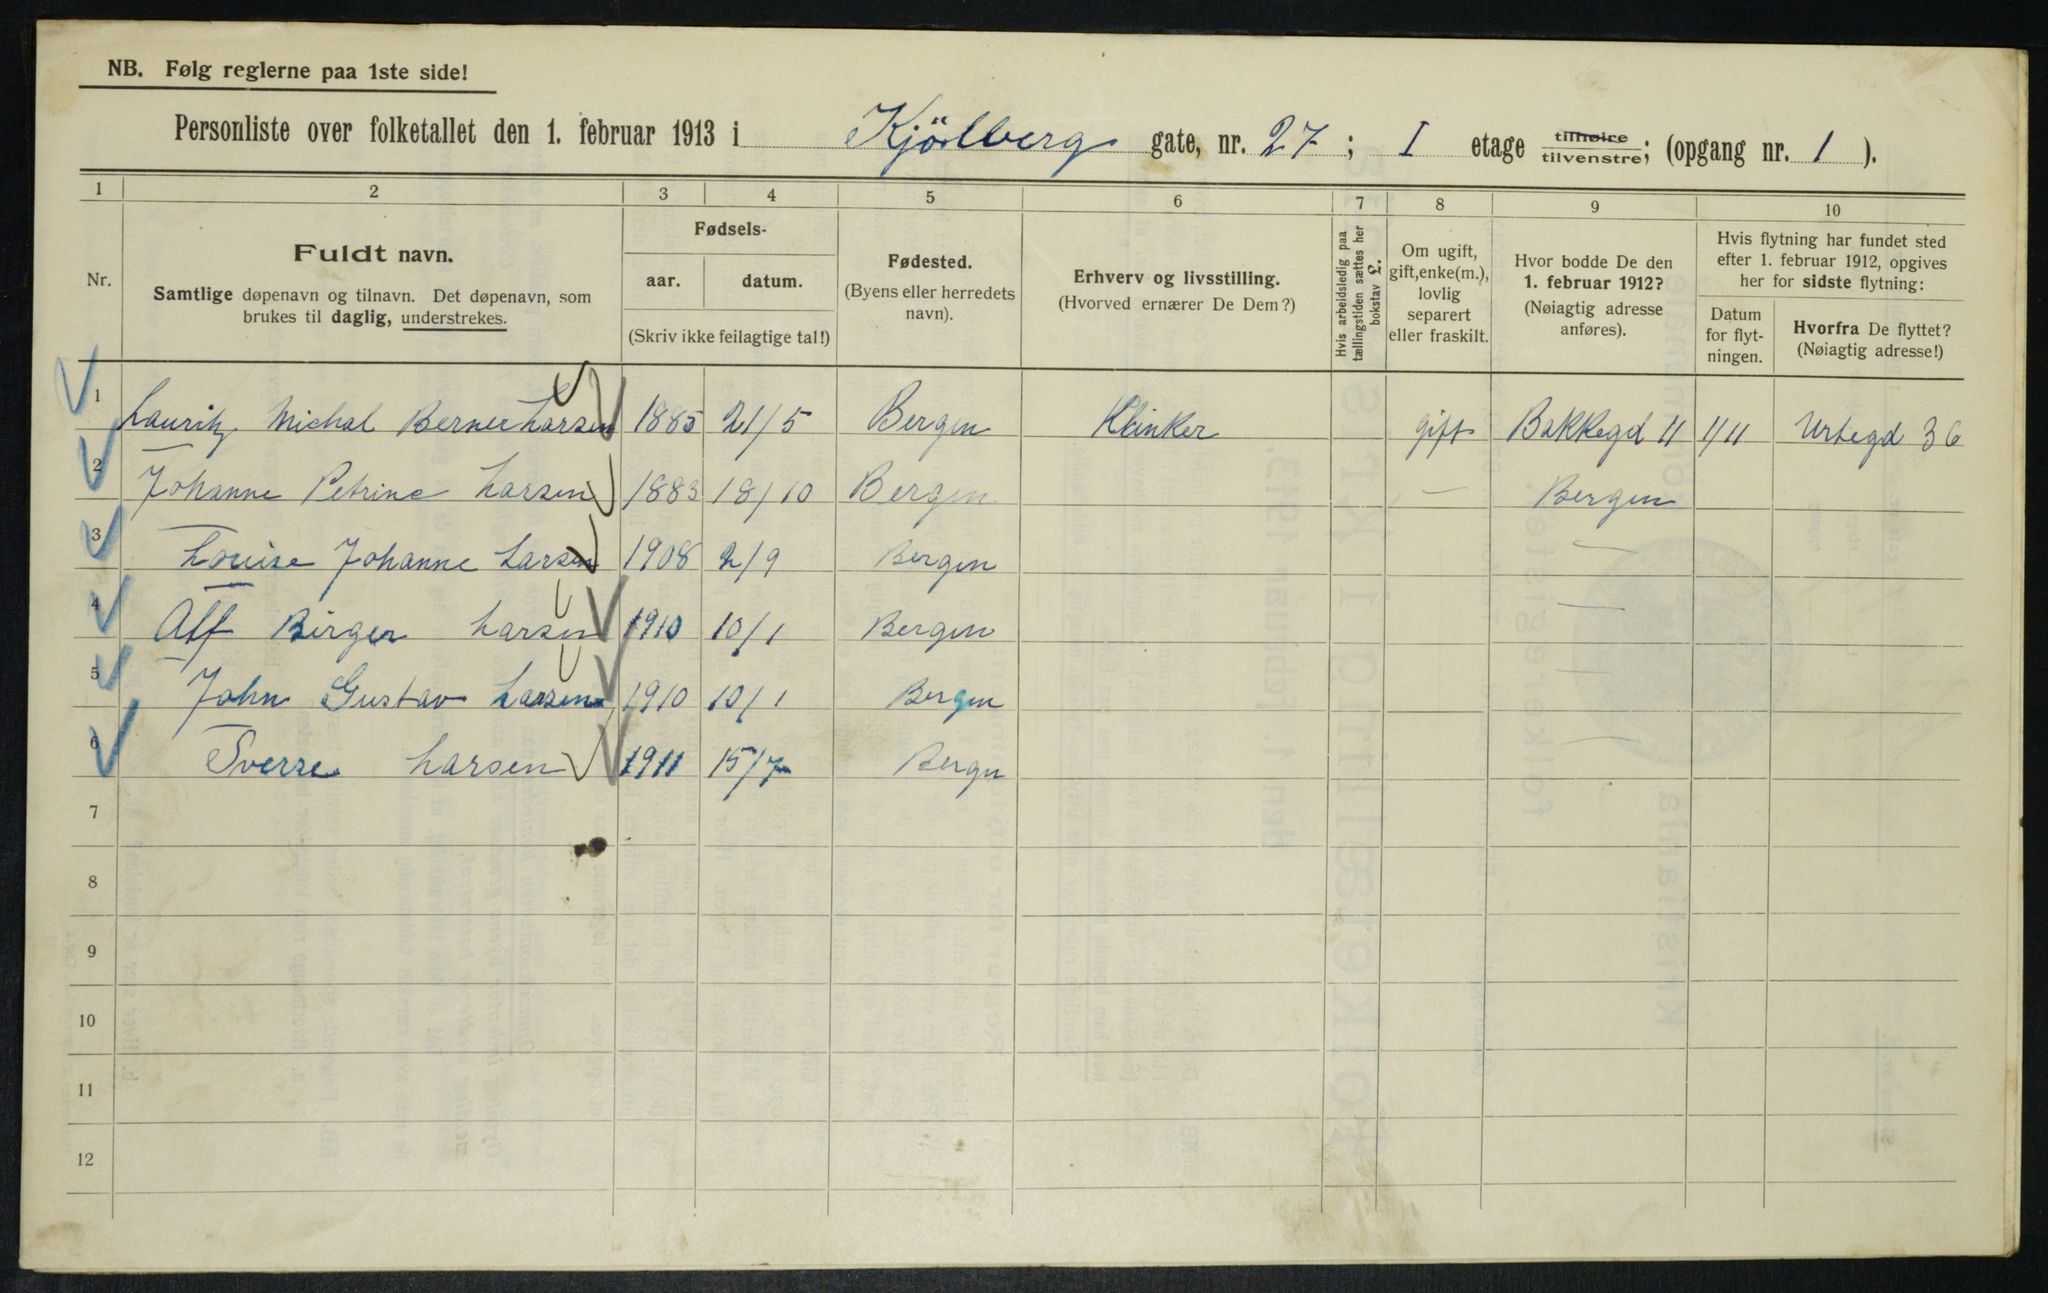 NB. Følg reglerne paa 1ste side!
Personliste over folketallet den 1. februar 1913 i Kjölberg gate, nr. 27; I etage tilhøire tilvenstre; (opgang nr. 1).
1 2 3 4 5 6 7 8 9 10
Nr.
Fuldt navn.
Samtlige døpenavn og tilnavn. Det døpenavn, som
brukes til daglig, understrekes.
Fødsels-
aar. datum.
(Skriv ikke feilagtige tal!)
Fødested.
(Byens eller herredets
navn).
Erhverv og livsstilling.
(Hvorved ernærer De Dem?)
Hvis arbeidsledig paa
tællingstiden sættes her
bokstav L.
Om ugift,
gift, enke(m.),
lovlig
separert
eller fraskilt.
Hvor bodde De den
1. februar 1912?
(Nøiagtig adresse
anføres).
Hvis flytning har fundet sted
efter 1. februar 1912, opgives
her for sidste flytning:
Datum
for flyt-
ningen.
Hvorfra De flyttet?
(Nøiagtig adresse!)
1 Lauritz Michal Berner Larsen 1885 21/5 Bergen Klinker gift Bakkegd 11 1/11 Urtegd 36
2 Johanne Petrine Larsen 1883 18/10 Bergen — Bergen
3 Louise Johanne Larsen 1908 2/9 Bergen —
4 Alf Birger Larsen 1910 10/1 Bergen —
5 John Gustav Larsen 1910 10/1 Bergen —
6 Sverre Larsen 1911 15/7 Bergn —
7
8
9
10
11
12